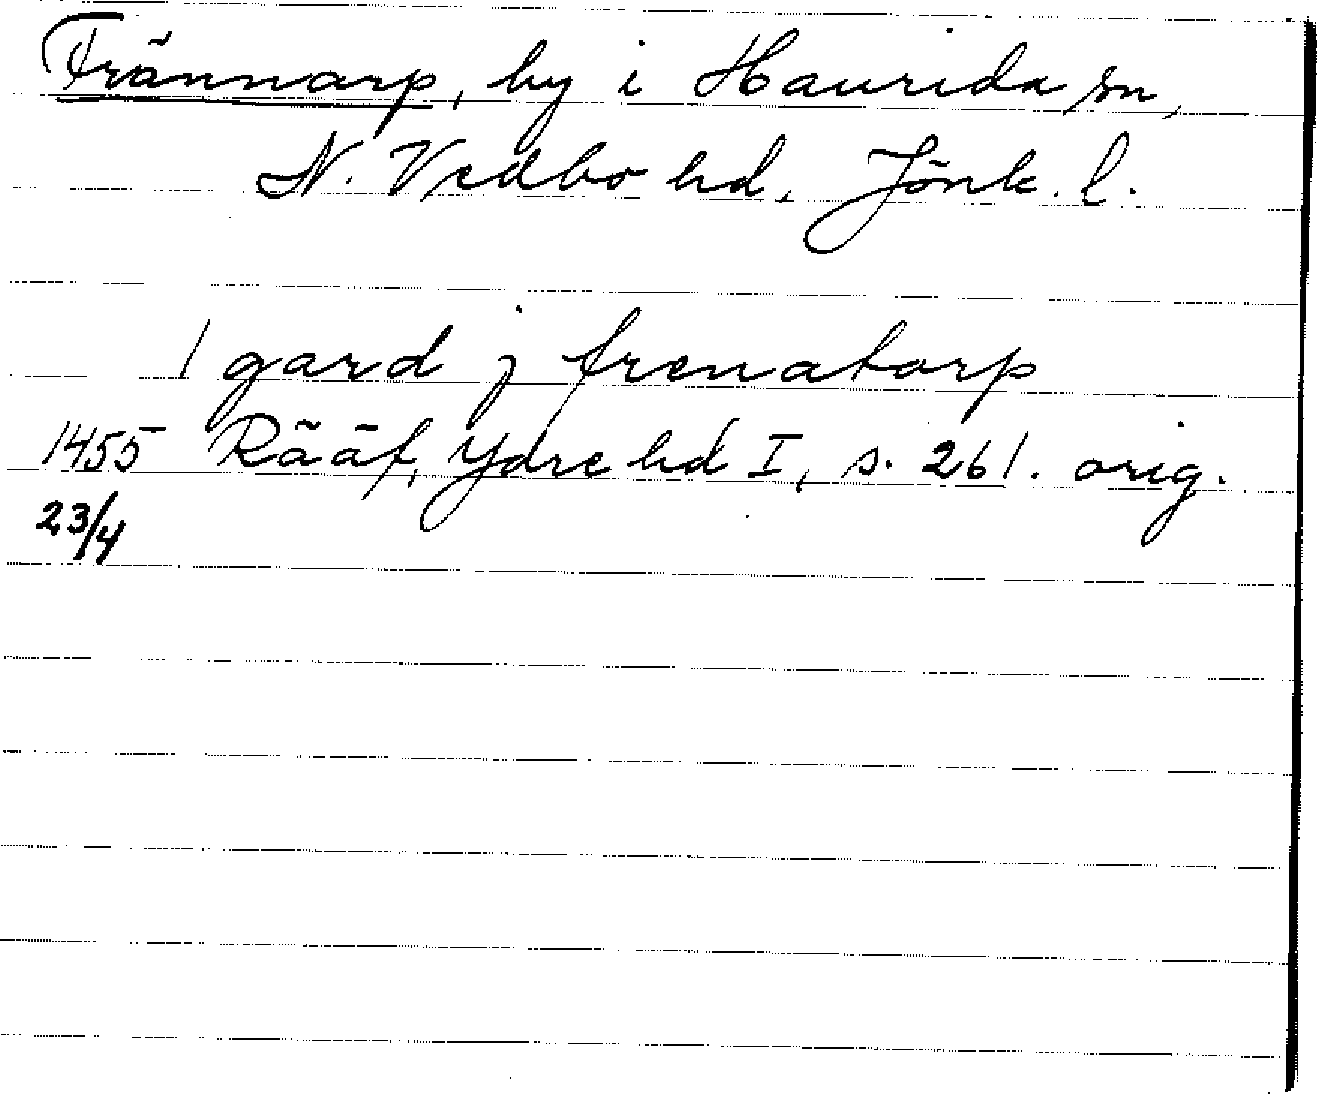 Frännarp, by i Haurida sn,
N. Vedbo hd, Jönk. l.
1 gard j frenatorp
1455 Rääf, Ydre hd I, s. 261. orig.
23/4